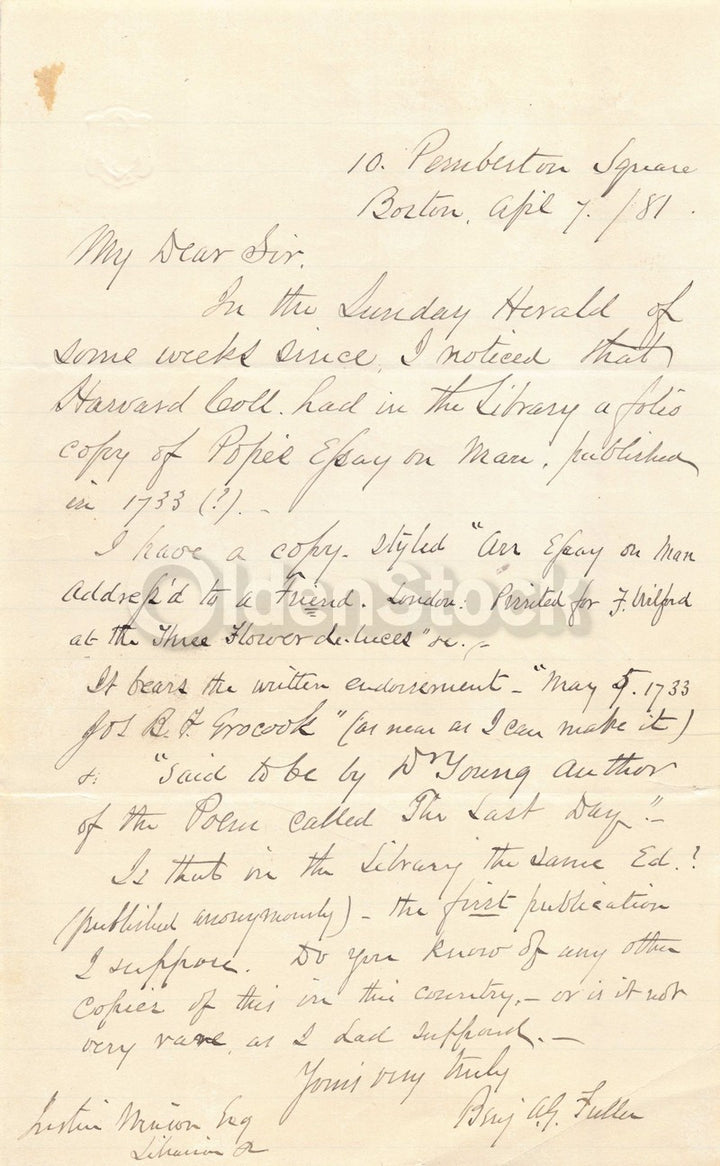 10. Pemberton Square
Boston, Apl 7. /81.
My Dear Sir.
In the Sunday Herald of
some weeks since, I noticed that
Harvard Coll. had in the Library a folio
copy of Pope's Essay on Man. published
in 1733 (?). –
I have a copy. styled "An Essay on Man
Address'd to a Friend. London: Printed for J. Wilford
at the Three Flower de luces" &c. –
It bears the written endorsement – "May 5. 1733
Jos B. F. Grocook" (as near as I can make it)
&: "Said to be by Dr Young Author
of the Poem called The Last Day." –
Is that in the Library the same Ed.?
(published anonymously) – the first publication
I suppose. Do you know of any other
copies of this in this country, – or is it not
very rare, as I had supposd. –
Yours very truly
Benj A. G. Fuller
Justin Winsor Esq
Librarian &c
OldenStock